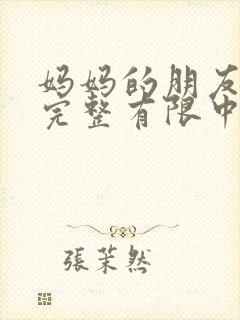 妈妈的朋友
完整有限中
張茉然